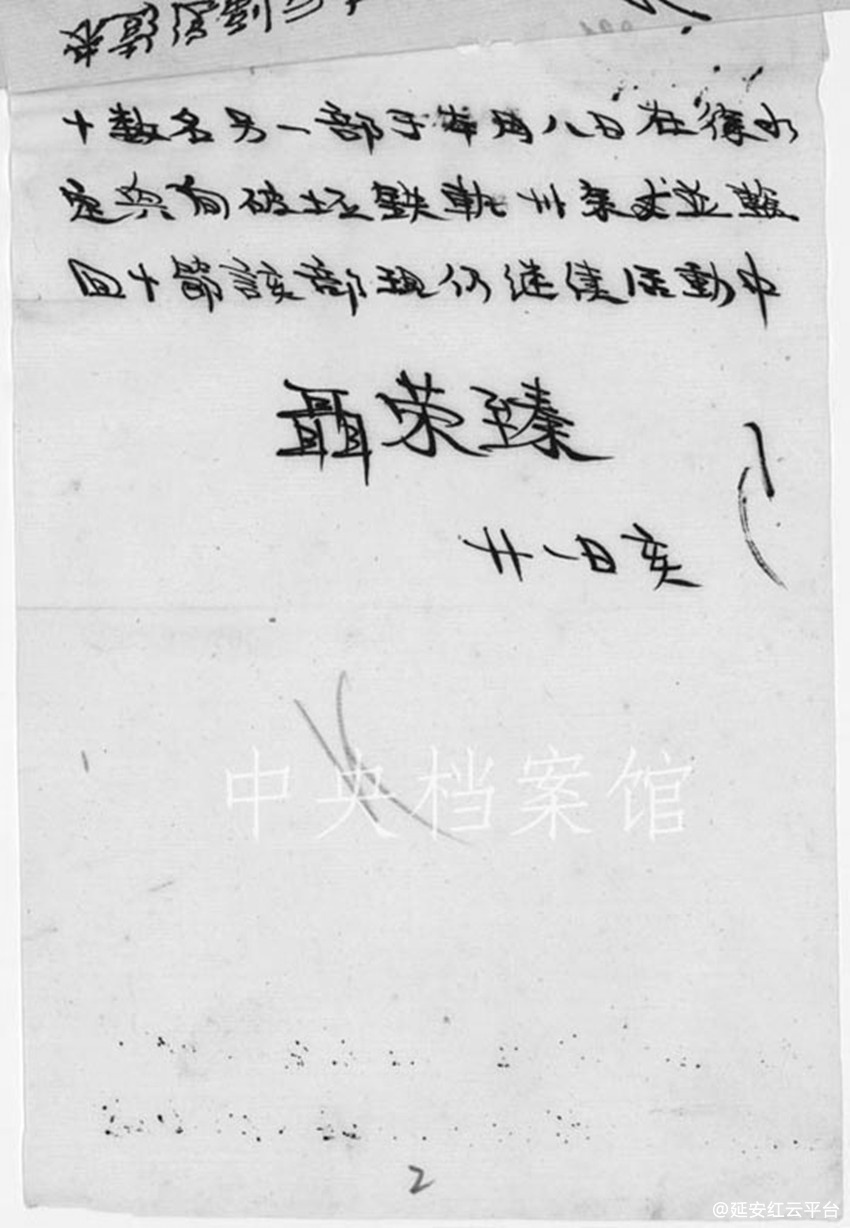 十数名另一部于本月八日在徐水
定兴间破坏鉄軌卅条丈並毁
回十節該部现仍继续活動中
聶荣臻
廿一日亥
中央档案馆
2
@延安红云平台